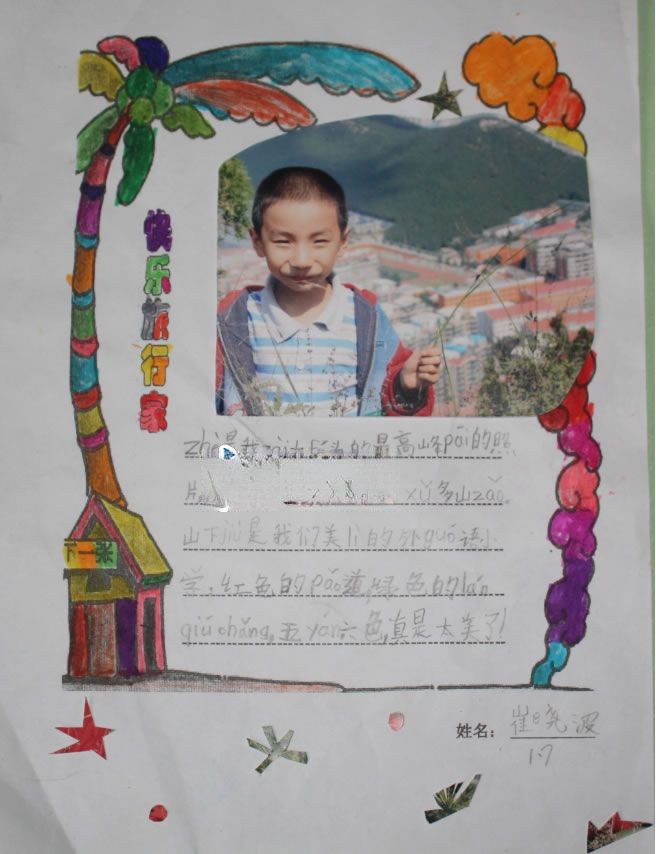 快乐旅行家
zhè是我 的最高峰pāi的照
片 xǔ多山zǎo。
山下jiù是我们美lì的外guó语小
学,红色的pǎo道,绿色的lán
qiú chǎng,五yán六色,真是太美了!
下一张
姓名:崔晓波
1.7